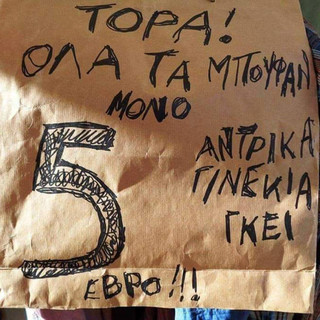 ΤΟΡΑ!
ΟΛΑ ΤΑ ΜΠΟΥΦΑΝ
ΜΟΝΟ
5
ΑΝΤΡΙΚΑ
ΓΙΝΕΚΙΑ
ΓΚΕΙ
ΕΒΡΟ!!!